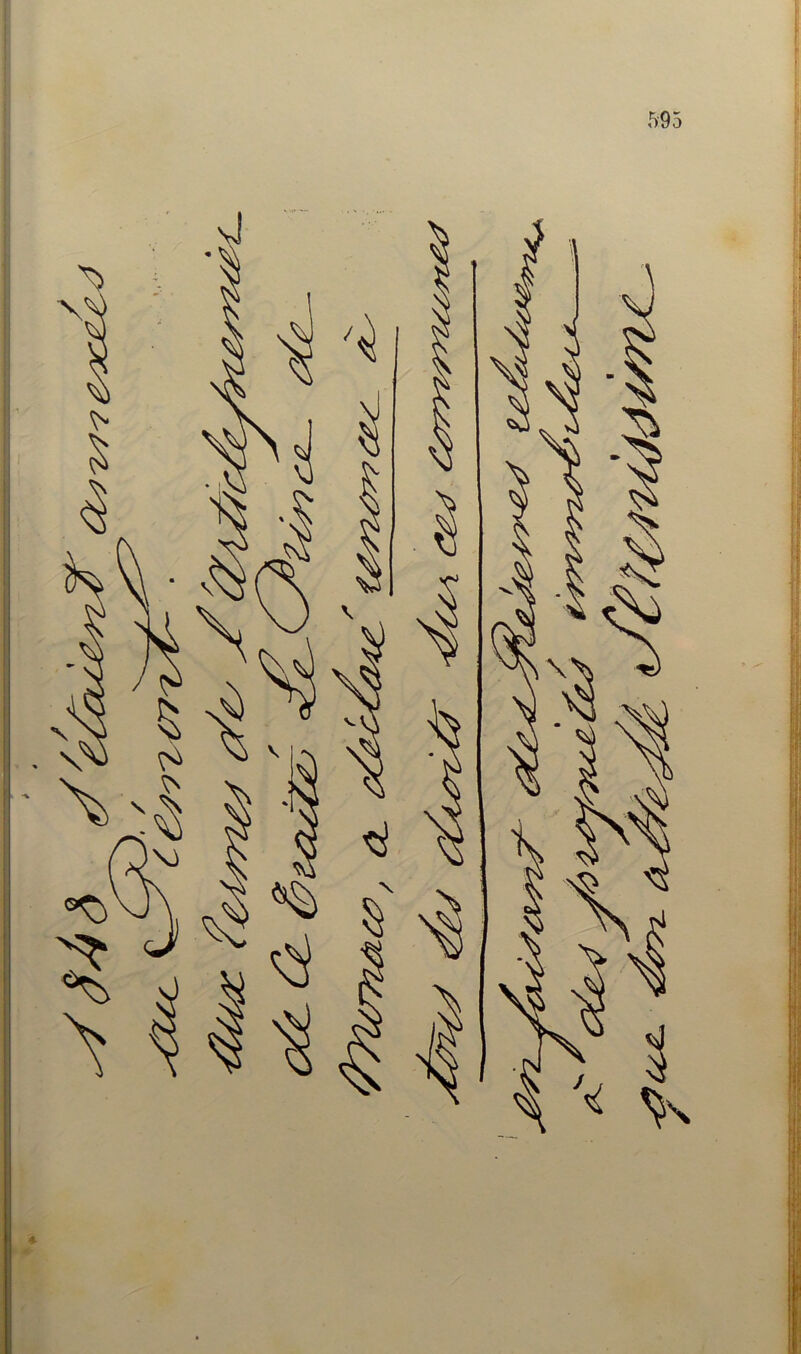 595
1848 s'étaient annexées
au Piémont.
aux termes de l'article premier
de ce traité Le Prince de
Monaco, a déclaré renoncer à
tous ses droits sur ces communes
en faisant des Réserves relativement
à des propriétés immobilières
que Son altesse Serenissime